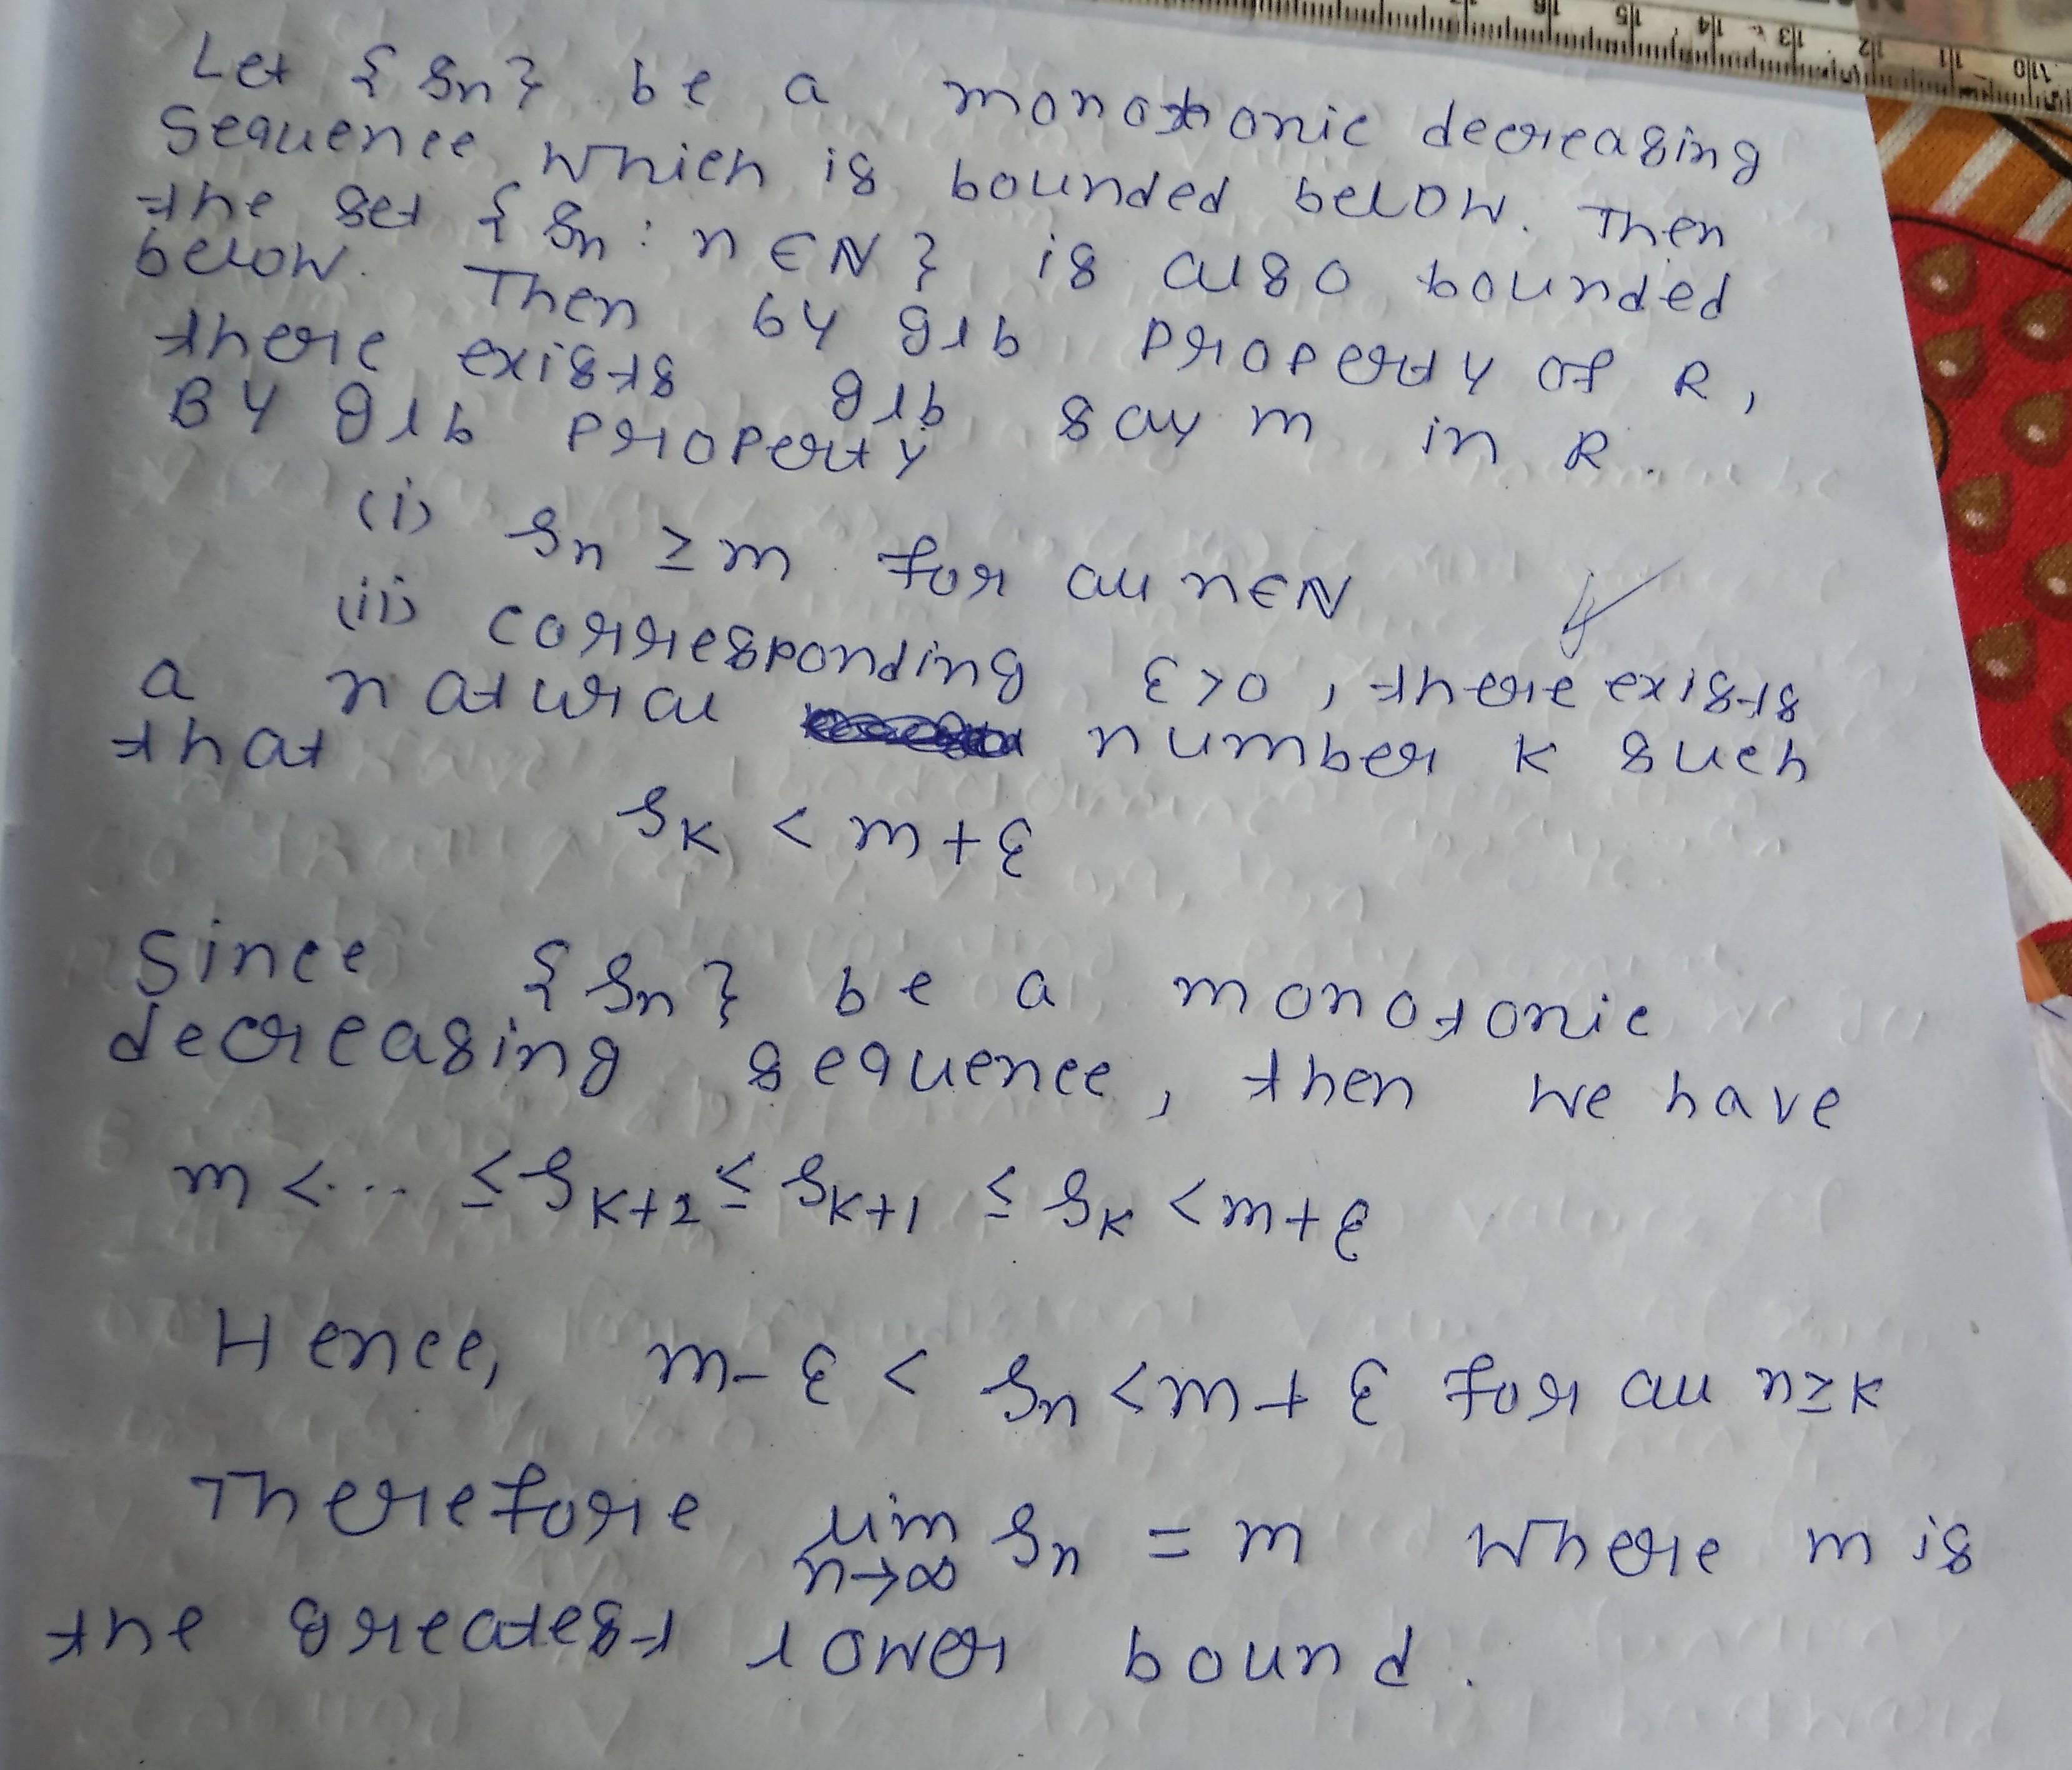 Let {Sn} be a monotonic decreasing
Sequence which is bounded below. Then
the set {Sn : n ∈ N} is also bounded
below. Then by glb property of R,
there exists glb say m in R.
By glb property
(i) Sn ≥ m for all n∈N
(ii) corresponding ε>0, there exists
a natural number K such
that
SK < m+ε
Since {Sn} be a monotonic
decreasing sequence, then we have
m < ... ≤ SK+2 ≤ SK+1 ≤ SK < m+ε
Hence, m-ε < Sn < m+ε for all n≥K
Therefore lim n→∞ Sn = m where m is
the greatest lower bound.
16 15 14 13 12 11 10